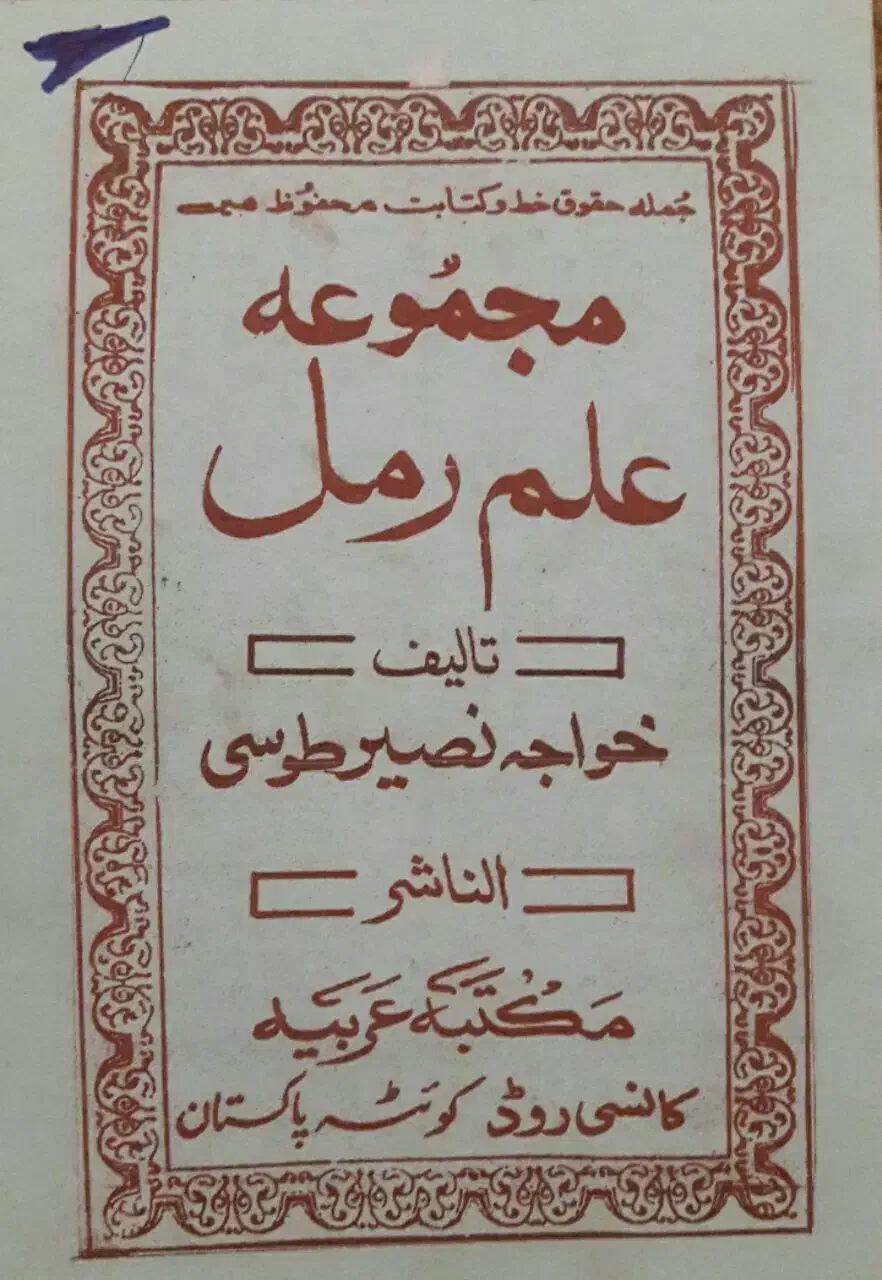 جُمله حقوق خط و کتابت محفوُظ هیں
مجمُوعه
علم رمل
تالیف
خواجه نصیر طوسی
الناشر
مَکْتَبَه عَرَبَیه
کانسی روڈ کوئٹہ پاکستان